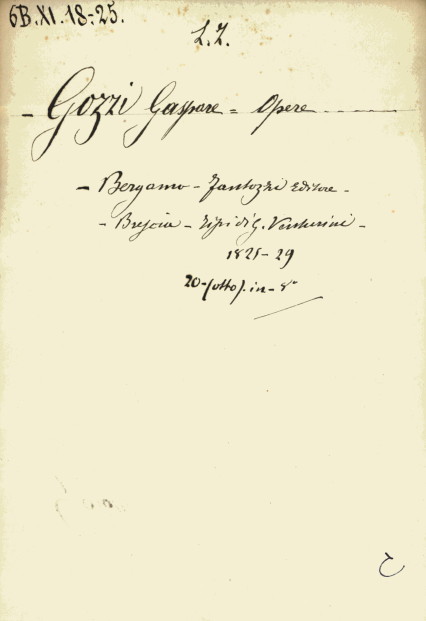 6B.XI.18-25.
L.Z.
- Gozzi Gaspare = Opere
- Bergamo - Fantozzi Editore -
- Brescia - Tipi di G. Venturini -
1825-29
20-(otto). in - 8°